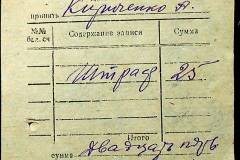 принять Кириченко А.
№№ бал. сч. Содержание записи Сумма
Штраф 25
Итого
сумма Двадцать пять